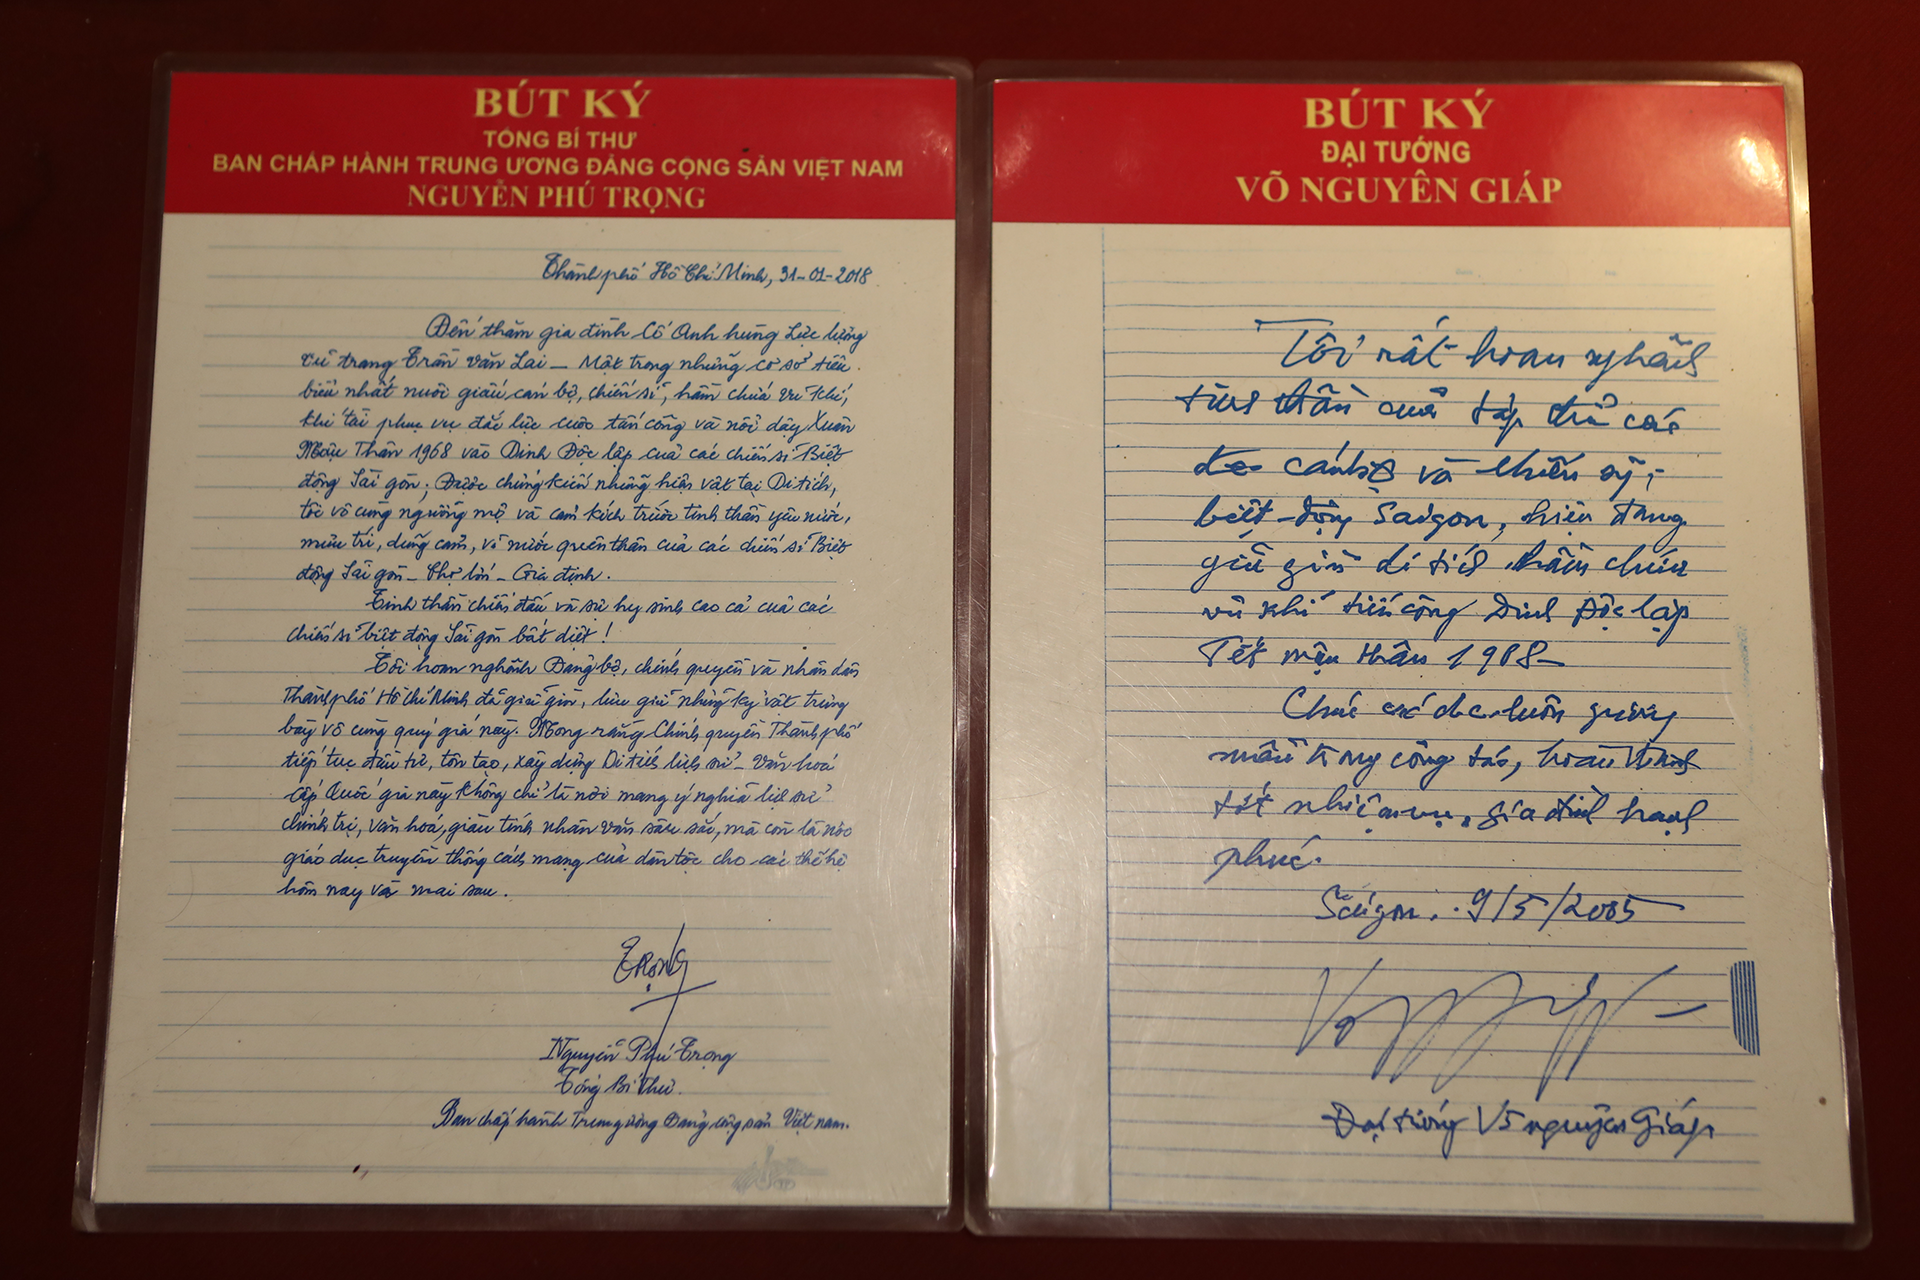 BÚT KÝ
TỔNG BÍ THƯ
BAN CHẤP HÀNH TRUNG ƯƠNG ĐẢNG CỘNG SẢN VIỆT NAM
NGUYỄN PHÚ TRỌNG
Thành phố Hồ Chí Minh, 31-01-2018
Đến thăm gia đình Cố Anh hùng Lực lượng
vũ trang Trần Văn Lai - Một trong những cơ sở tiêu
biểu nhất nuôi giấu cán bộ, chiến sĩ, hầm chứa vũ khí,
khí tài phục vụ đắc lực cuộc tấn công và nổi dậy Xuân
Mậu Thân 1968 vào Dinh Độc lập của các chiến sĩ Biệt
động Sài gòn; Được chứng kiến những hiện vật tại Di tích,
tôi vô cùng ngưỡng mộ và cảm kích trước tinh thần yêu nước,
mưu trí, dũng cảm, vì nước quên thân của các chiến sĩ Biệt
động Sài gòn - Chợ lớn - Gia định.
Tinh thần chiến đấu và sự hy sinh cao cả của các
chiến sĩ biệt động Sài gòn bất diệt!
Tôi hoan nghênh Đảng bộ, chính quyền và nhân dân
Thành phố Hồ Chí Minh đã giữ gìn, lưu giữ những kỷ vật trưng
bày vô cùng quý giá này. Mong rằng Chính quyền Thành phố
tiếp tục đầu tư, tôn tạo, xây dựng Di tích lịch sử - Văn hoá
cấp Quốc gia này không chỉ là nơi mang ý nghĩa lịch sử
chính trị, văn hoá, giàu tính nhân văn sâu sắc, mà còn là nơi
giáo dục truyền thống cách mạng của dân tộc cho các thế hệ
hôm nay và mai sau.
TRỌNG
Nguyễn Phú Trọng
Tổng Bí Thư
Ban chấp hành Trung ương Đảng cộng sản Việt nam.
BÚT KÝ
ĐẠI TƯỚNG
VÕ NGUYÊN GIÁP
Tôi rất hoan nghênh
tinh thần của tập thể các
đ/c cán bộ và chiến sỹ
biệt-động Saigon, hiện đang
giữ gìn di tích hầm chứa
vũ khí tiến công Dinh Độc lập
Tết mậu thân 1968-
Chúc các đ/c luôn gương
mẫu trong công tác, hoàn thành
tốt nhiệm vụ, gia đình hạnh
phúc.
Sàigòn, 9/5/2005
Đại tướng Võ nguyên Giáp